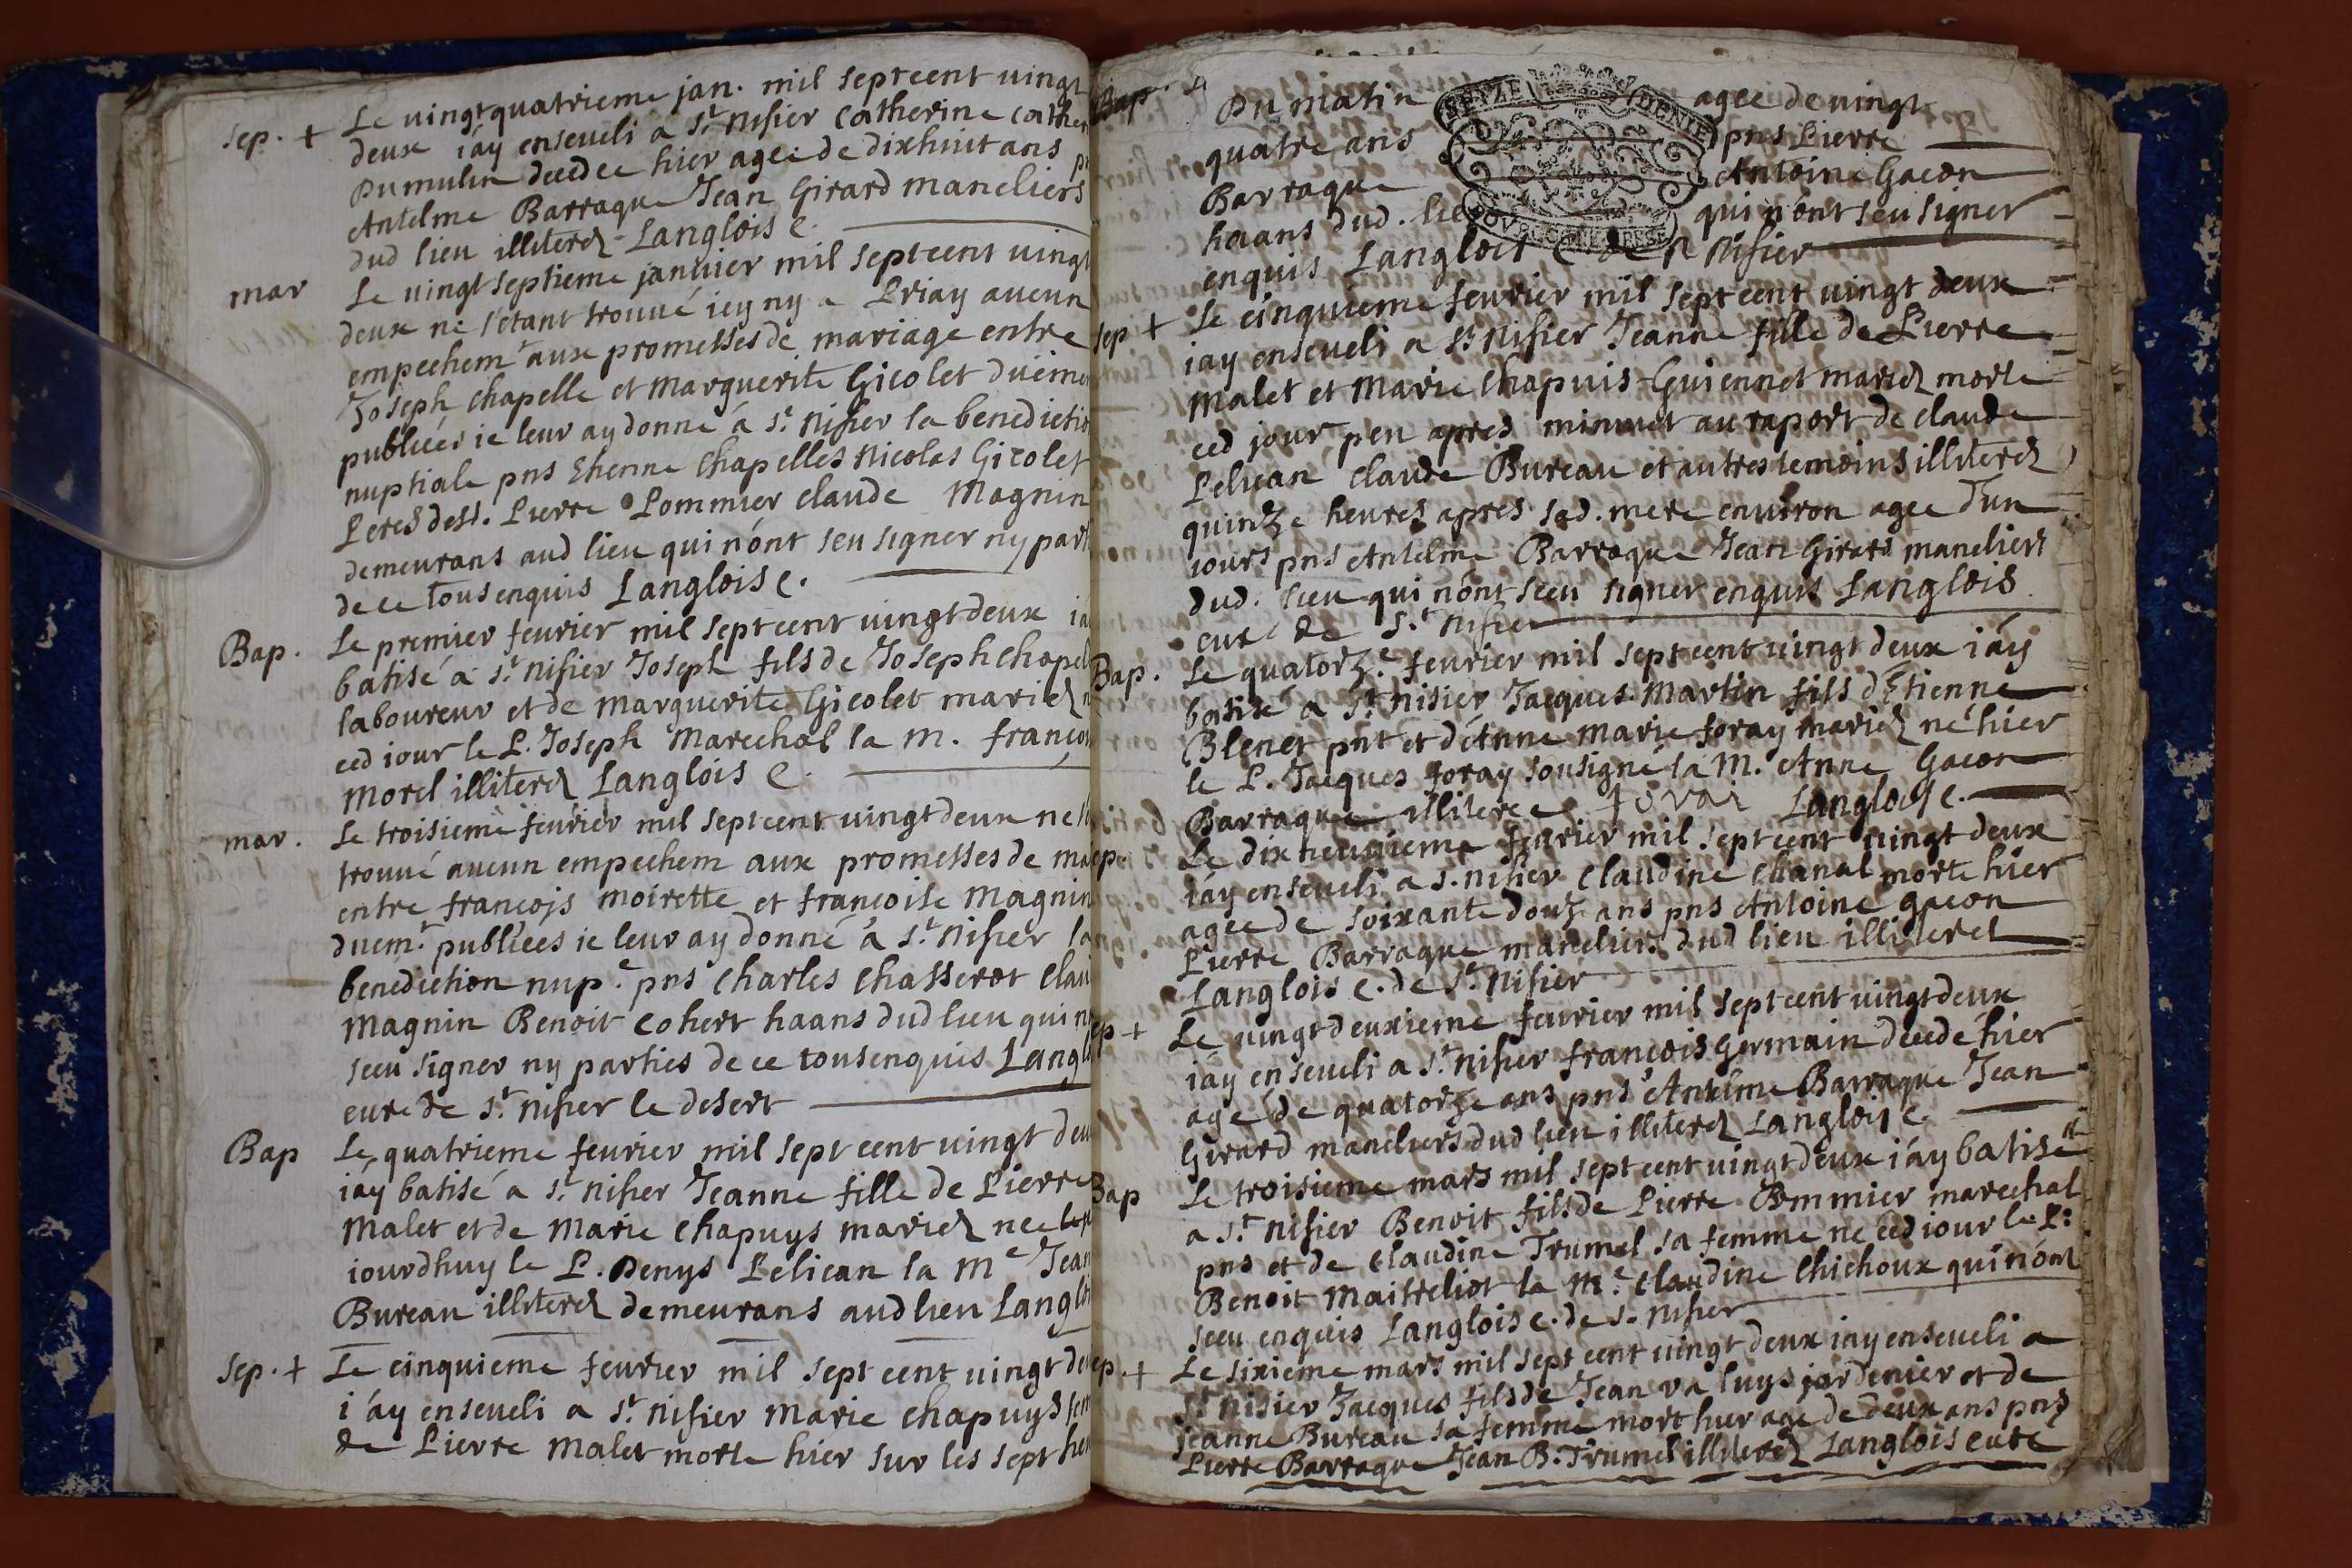 sep. + Le vingtquatrieme jan. mil septcent vingt
deux iáy enseveli a St. nisier Catherine
Dumulin decedee hier agee de dixhuit ans
Antelme Barraque Jean Girard maneliers
dud lieu illiterez Langlois C.
mar Le vingtseptieme janvier mil septcent vingt
deux ne s'etant trouvé icy ny a Priay aucun
empechemt aux promesses de mariage entre
Joseph Chapelle et Marguerite Gicolet
publiées ie leur ay donné á St. nisier la
nuptiale pns Etienne Chapelles Nicolas Gicolet
Peres desd. Pierre Pommier claude Magnin
demeurans aud lieu qui n'ont seu signer ny
de ce tous enquis Langlois C.
Bap. Le premier fevrier mil septcent vingtdeux
batisé a St. nisier Joseph fils de Joseph
laboureur et de Marguerite Gicolet mariez
ced iour le P. Joseph Marechal la m.
Morel illiterez Langlois C.
mar. Le troisieme fevrier mil septcent vingtdeux ne
trouvé aucun empechem aux promesses de
entre francois moirette et francoise Magnin
duemt. publiees ie leur ay donné á St. Nisier
benediction nup.e pns Charles Chasserot
Magnin Benoit Cohert haans dud lieu qui
seeu signer ny parties de ce tous enquis
cure de St. nisier le desert
Bap Le quatrieme fevrier mil sept cent vingt
iáy batisé a St. nisier Jeanne fille de Pierre
Malet et de Marie Chapuys mariez nee
iourdhuy le P. Denys Pelican la Me
Bureau illiterez demeurans aud lieu
sep. + Le cinquieme fevrier mil sept cent vingt
i áy enseveli a St. nisier Marie Chapuys
de Pierre Malet morte hier sur les sept
Bap.
Du matin agee de vingt
quatre ans pns Pierre
Barraque Antoine Gacon
haans dud. lieu qui n'ont seu signer
enquis Langlois C de St Nisier
sep + Le cinquieme fevrier mil sept cent vingt deux
iay enseveli a St Nisier Jeanne fille de Pierre
Malet et Marie Chapuis Guiennet mariez morte
ced jour peu apres minuit au raport de claude
Pelican Claude Bureau et autres temoins illiterez
quindze heures apres sad. mere environ agee d'un
iours pns Antelme Barraque Jean Girard maneliers
dud. lieu qui n'ont seeu signer enquis Langlois
curé de St. Nisier
Bap. Le quatorz.e fevrier mil septcent vingt deux iáy
batisé a St nisier Jacques Martin fils d'Etienne
Blenet pnt et d'Anne Marie foray mariez né hier
le P. Jacques foray sousigné la M. Anne Gacon
Barraque illiteree foray Langlois C.
Le dixneuvieme fevrier mil septcent vingt deux
iáy enseveli a S. nisier Claudine Chanal morte hier
agee de soixante douz ans pns Antoine gacon
Pierre Barraque maneliers dud lieu illiterez
Langlois C. de St. Nisier
+ Le vingtdeuxieme fevrier mil septcent vingtdeux
iáy enseveli a St. Nisier francois germain decede hier
agé de quatorze ans pns Antelme Barraque Jean
Girard maneliers dud lieu illiterez Langlois C.
Bap Le troisieme mars mil septcent vingtdeux iáy batisé
a St. nisier Benoit fils de Pierre Pommier marechal
pns et de Claudine Trumel sa femme né ced iour le P.
Benoit Maitreliot la M.e Claudine Chichoux qui n'ont
seeu enquis Langlois C. de S. Nisier
+ Le sixieme mars mil sept cent vingt deux iay enseveli a
St nisier Jacques fils de Jean valuys jardenier et de
jeanne Bureau sa femme mort hier age de deux ans pns
Pierre Barraque Jean B. Trumel illiterez Langlois curé